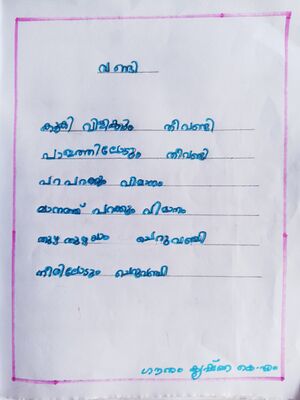 വണ്ടി
കൂകി വിളിക്കും തീവണ്ടി
പാളത്തിലോടും തീവണ്ടി
പറപറക്കും വിമാനം
മാനത്ത് പറക്കും വിമാനം
തുഴതുഴയാം ചെറുവഞ്ചി
നീരിലോടും ചെറുവഞ്ചി
ഗൗതം കൃഷ്ണ കെ.എം